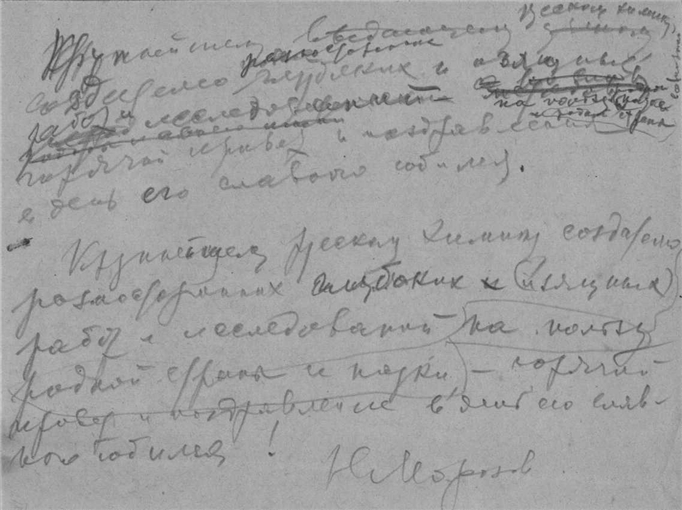 Крупнейшему русскому химику,
создателю разносторонних глубоких и изящных
работ и исследований на пользу науки
и родной страны
горячий привет и поздравления
в день его славного юбилея.
Крупнейшему русскому химику создателю
разносторонних глубоких и (изящных)
работ и исследований на пользу
родной страны и науки – горячий
привет и поздравление в день его слав-
ного юбилея!
Н Морозов